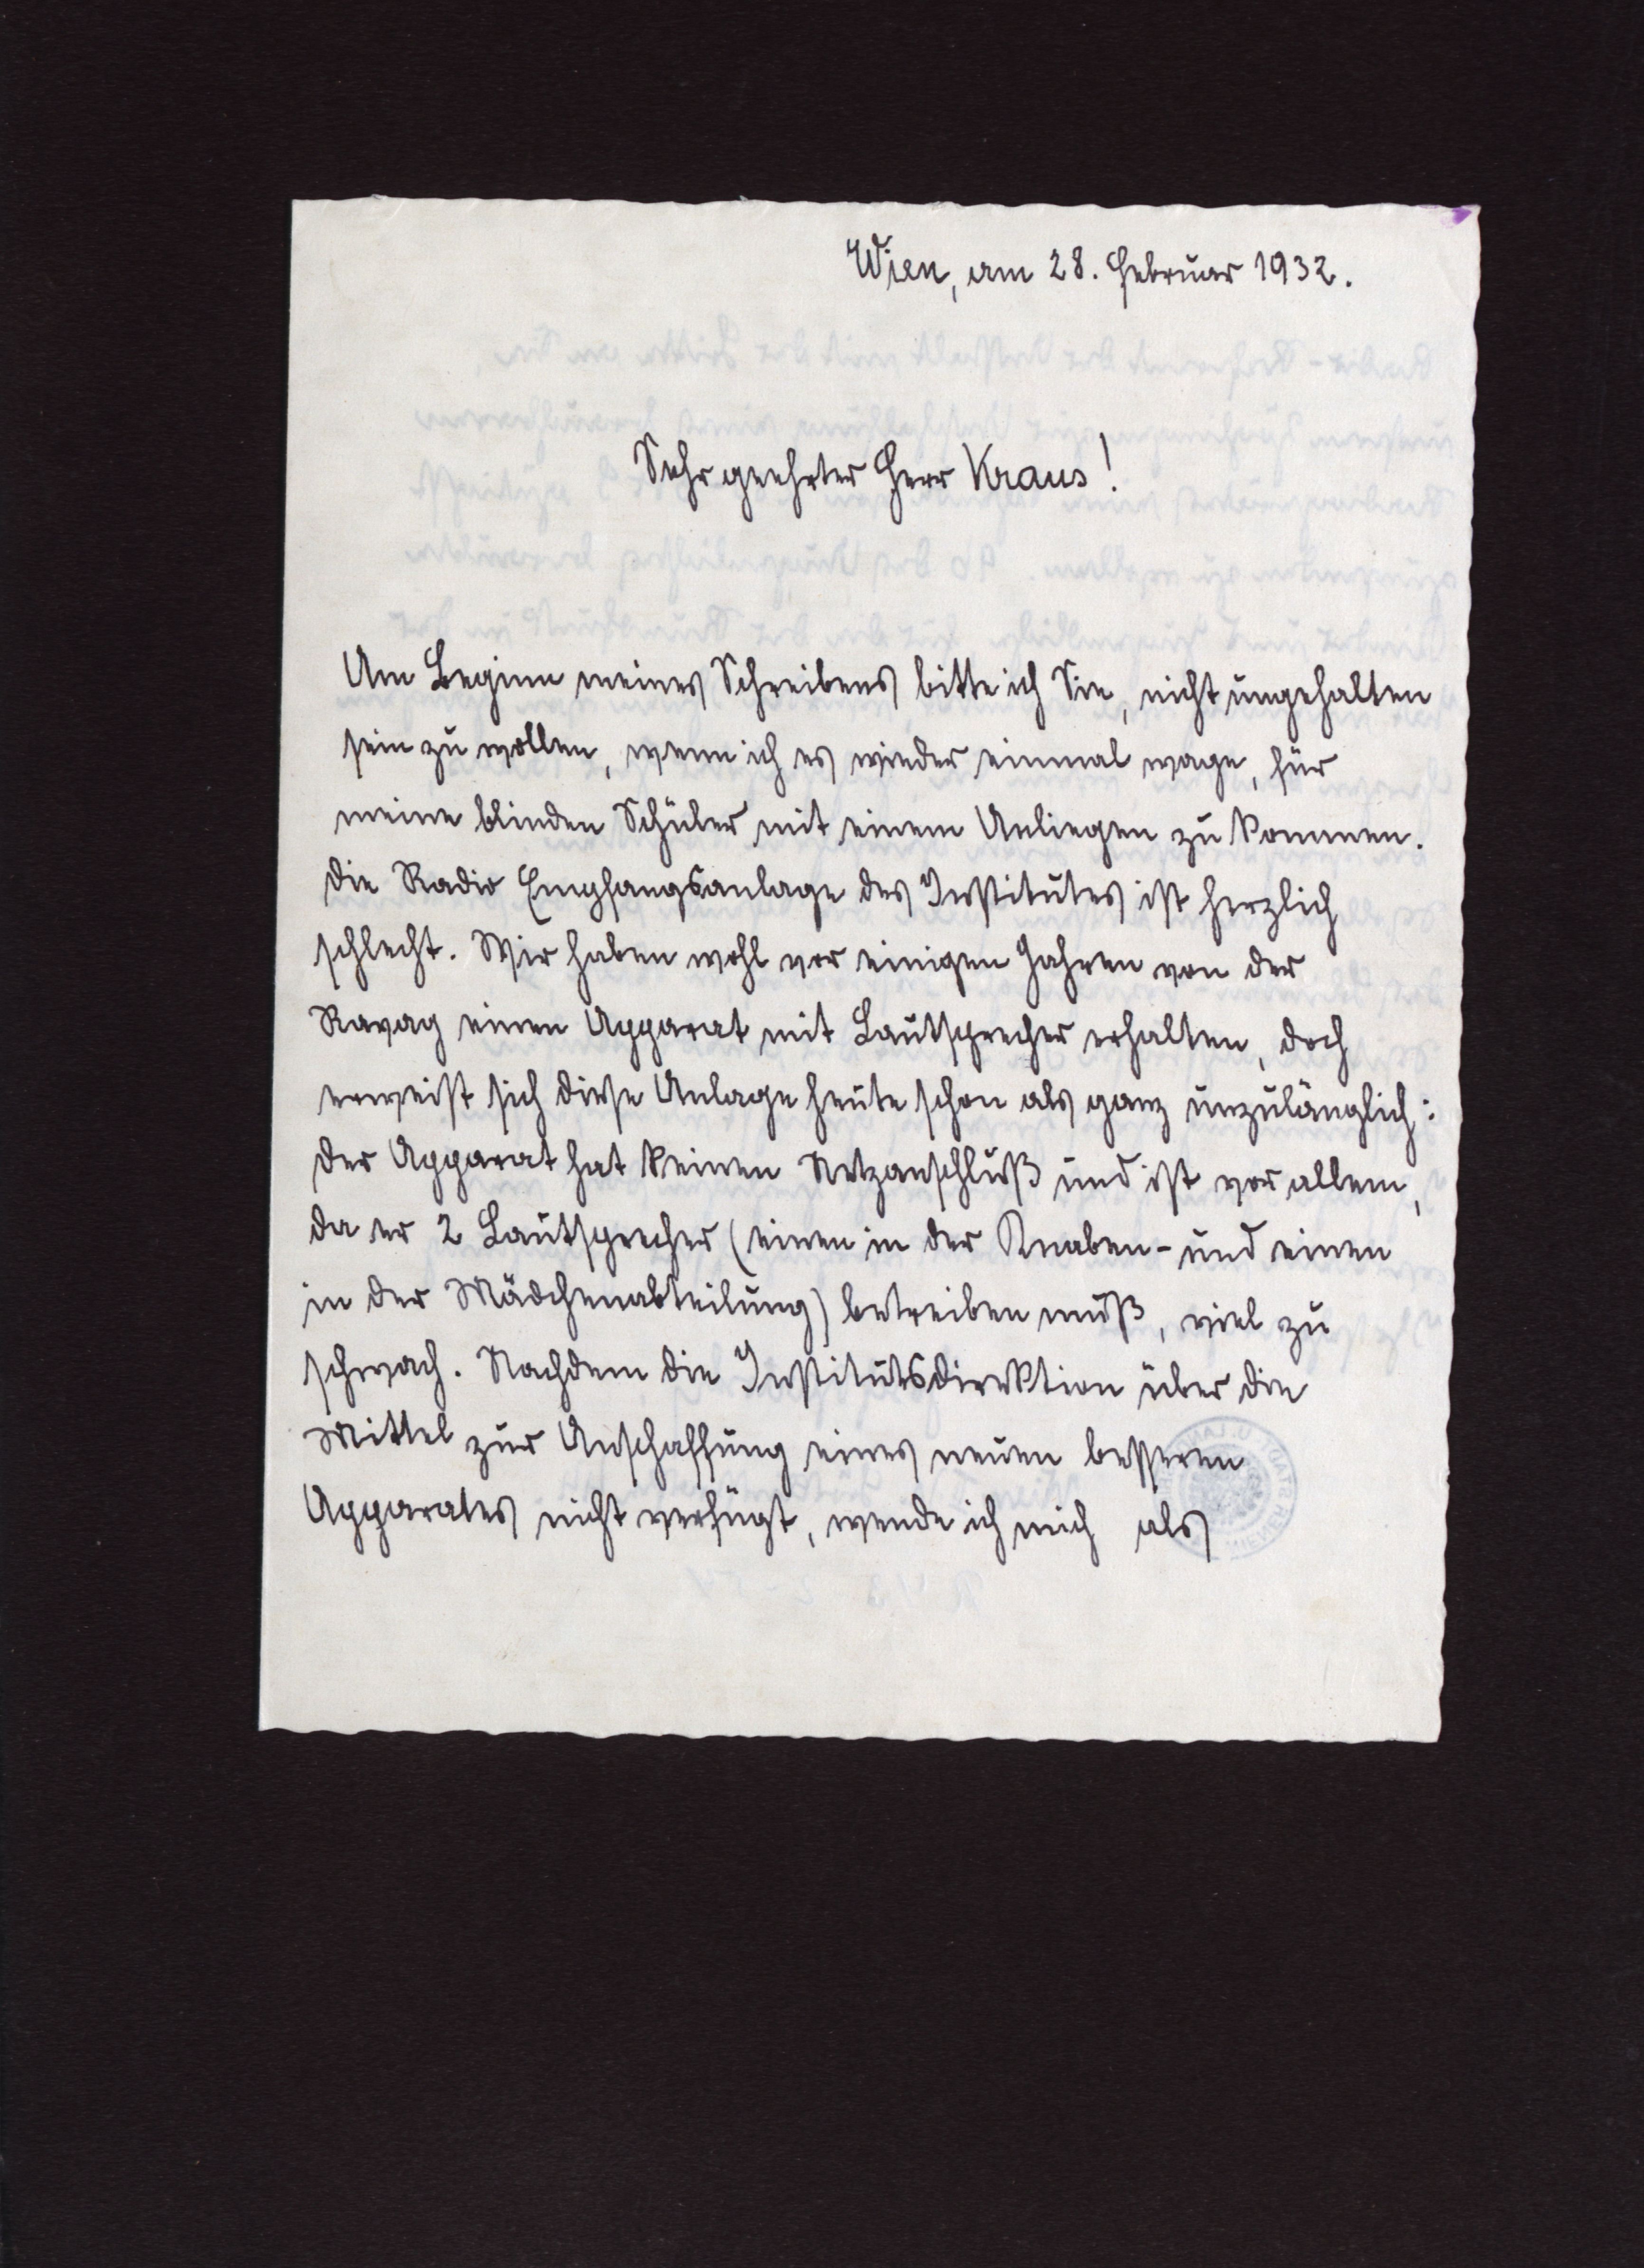 Wien, am 28. Februar 1932.
Sehr geehrter Herr Kraus!
Am Beginn meines Schreibens bitte ich Sie, nicht ungehalten
sein zu wollen, wenn ich es wieder einmal wage, für
meine blinden Schüler mit einem Anliegen zu kommen.
Die Radio Empfangsanlage des Institutes ist herzlich
schlecht. Wir haben wohl vor einigen Jahren von der
Ravag einen Apparat mit Lautsprecher erhalten, doch
erweist sich diese Anlage heute schon als ganz unzulänglich:
der Apparat hat keinen Netzanschluß und ist vor allem,
da er 2 Lautsprecher (einen in der Knaben- und einen
in der Mädchenabteilung) betreiben muß, viel zu
schwach. Nachdem die Institutsdirektion über die
Mittel zur Anschaffung eines neuen besseren
Apparates nicht verfügt, wende ich mich als